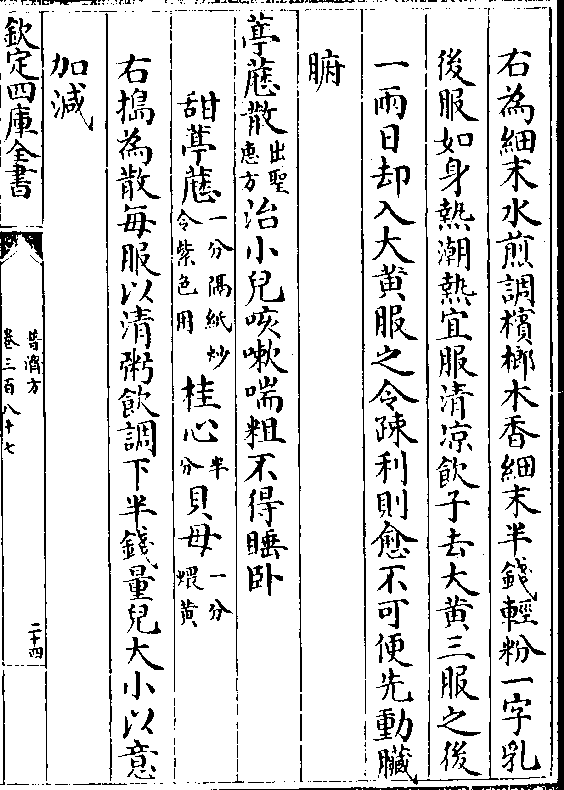 右為細末水煎調檳榔木香細末半錢輕粉一字乳
後服如身熱潮熱宜服清凉飲子去大黄三服之後
一兩日却入大黄服之令疎利則愈不可便先動臟
腑
葶藶散出聖惠方治小兒咳嗽喘粗不得睡卧
甜葶藶一分隔紙炒令紫色用 桂心半分 貝母一分煨黄
右搗為散每服以清粥飲調下半錢量兒大小以意
加減
欽定四庫全書
普濟方
卷三百八十七
二十四